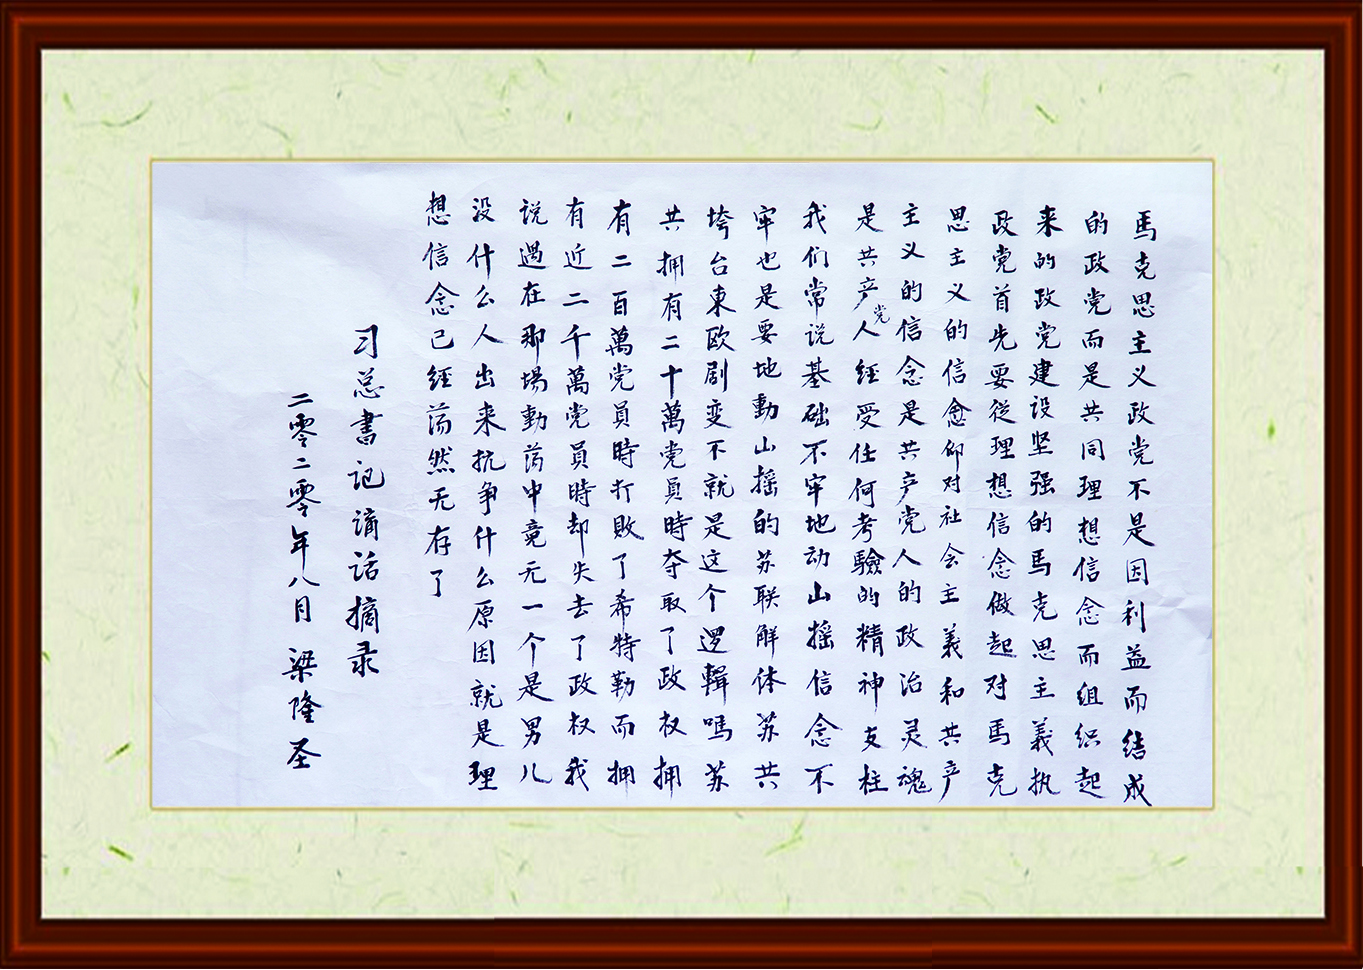 馬克思主义政党不是因利益而结成
的政党而是共同理想信念而组织起
来的政党建设坚强的馬克思主義执
政党首先要從理想信念做起对馬克
思主义的信念仰对社会主義和共产
主义的信念是共产党人的政治灵魂
是共产党人經受任何考驗的精神支柱
我们常说基础不牢地动山摇信念不
牢也是要地動山摇的苏联解体苏共
垮台東欧剧变不就是这个逻輯嗎苏
共拥有二十萬党員時夺取了政权拥
有二百萬党員時打敗了希特勒而拥
有近二千萬党員時却失去了政权我
说過在那場動荡中竟无一个是男儿
没什么人出来抗争什么原因就是理
想信念已經荡然无存了
习总書记讲话摘录
二零二零年八月 梁隆圣